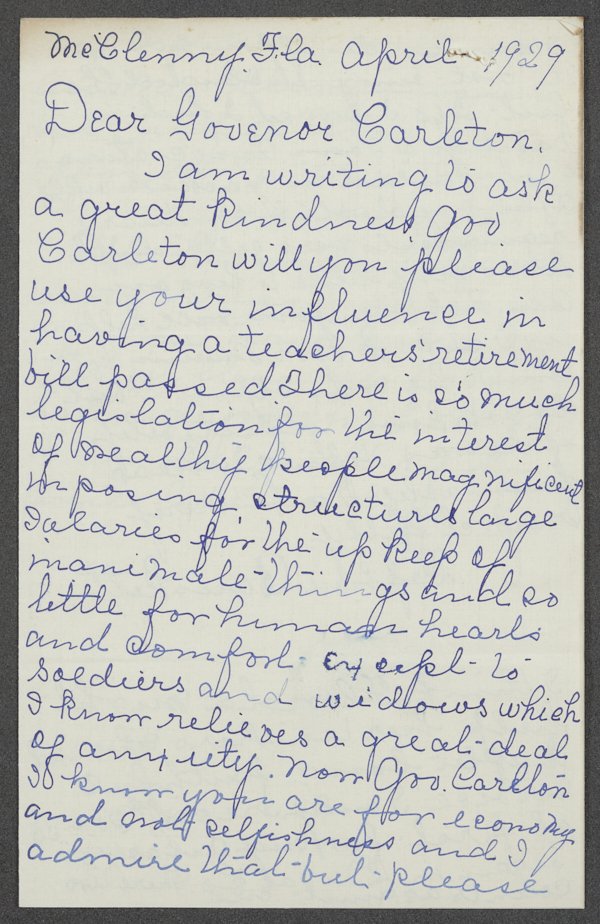 McClenny, Fla. April - 1929
Dear Govenor Carleton.
I am writing to ask
a great kindness Gov
Carleton will you please
use your influence in
having a teachers' retirement
bill passed. There is so much
legislation for the interest
of wealthy people magnificent
imposing structures large
salaries for the up keep of
inanimate things and so
little for human hearts
and comfort - except - to
soldiers and widows which
I know relieves a great - deal
of anxiety. Now Gov. Carlton
I know you are for economy
and not selfishness and I
admire that - but - please